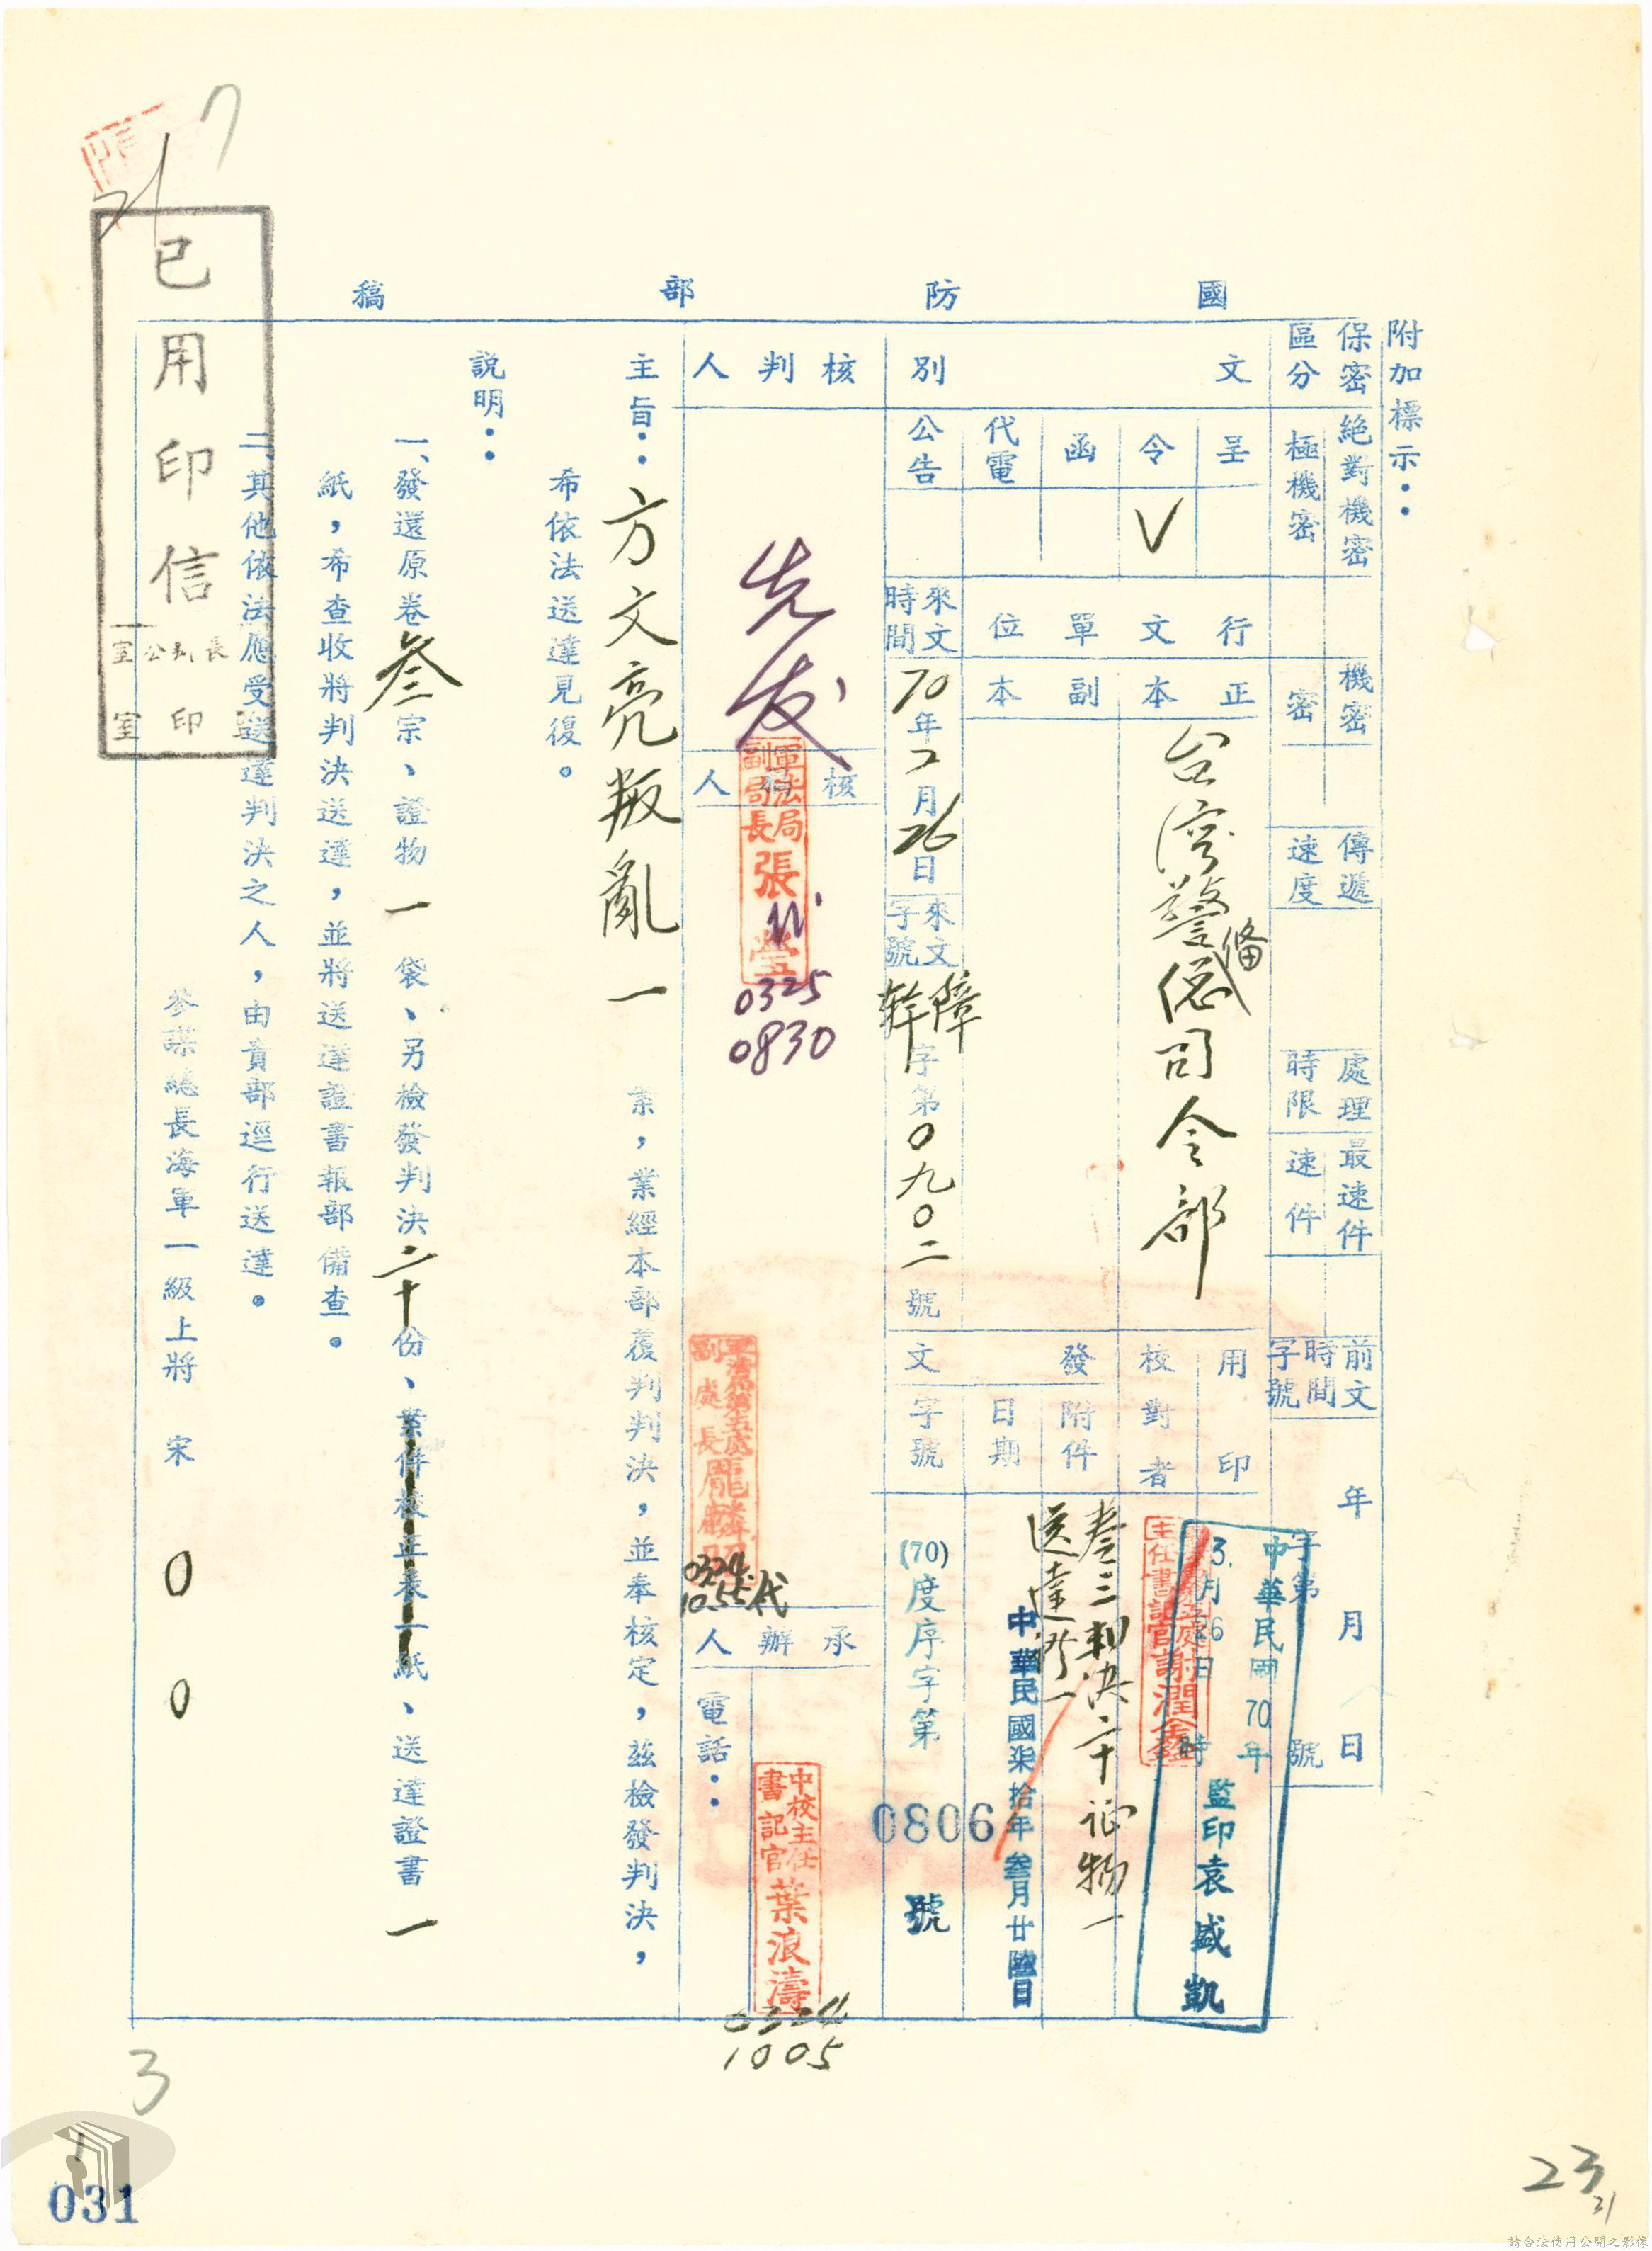 附加標示：
保密區分
絕對機密
極機密
機密
密
傳遞速度
處理時限
最速件
速件
前文時間字號
年 月 日
字第 號
國防部稿
文別
呈
令 V
函
代電
公告
行文單位
正本
台灣警備總司令部
副本
來文時間
70年2月26日
來文字號
障幹字第0九0二號
用印
中華民國70年
3.月26日 時
監印袁盛凱
校對者
主任書記官謝潤鑫
發文
附件
叁 三 判決二十 証物一
送達證一
日期
中華民國柒拾年叁月廿陸日
字號
(70)度序字第 0806 號
核判人
先发
軍法局副局長張
0325
0830
核稿人
副處長龐
0324
10.55代
承辦人
電話：
中校主任書記官葉浪濤
0324
1005
主旨：方文亮叛亂一案，業經本部覆判判決，並奉核定，茲檢發判決，
希依法送達見復。
說明：
一、發還原卷叁宗、證物一袋、另檢發判決二十份、案件核正表一紙、送達證書一
紙，希查收將判決送達，並將送達證書報部備查。
二、其他依法應受送達判決之人，由貴部逕行送達。
參謀總長海軍一級上將 宋 0 0
已用印信
室公長
室印
7
21
3
1
031
23
21
請合法使用公開之影像